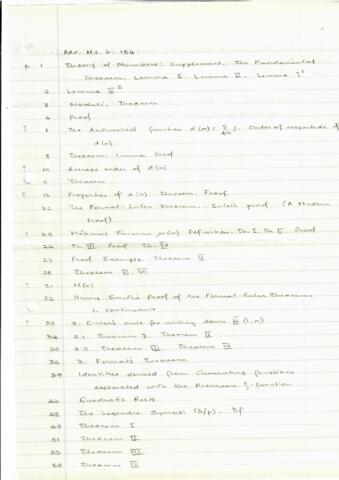 Add. Ms. b. 184
p. 1 Theory of Numbers: Supplement. The Fundamental
Theorem. Lemma I. Lemma II. Lemma 3'
2 Lemma II²
3 Moduli. Theorem
4 Proof
? 6 The Arithmetical function d(n) = Σ 1. Order of magnitude of
d(n)
8 Theorem. Lemma Proof
? 10 Average order of d(n)
11 Theorem
? 13 Properties of Theorem. Proof.
22 The Fermat-Euler Theorem. Euler's proof (A Modern
Proof)
? 25 Möbius's Function μ(n) Definition. Th. I. Th. II. Proof
26 Th. III. Proof Th. IV
27 Proof. Example Theorem V
28 Theorem VI. VII
? 31 M(n)
? 32 Henry Smith's Proof of the Fermat Euler Theorem.
1. continuance
? 33 2. Euler's rule for writing down (1, n)
34 2.1 Theorem I. Theorem II
35 2.2 Theorem III Theorem IV
36 3. Fermat's Theorem.
39 Identities derived from Generating functions
associated with the Riemann ζ-function
40 Quadratic Rests.
45 The Legendre Symbol (D/p). Df
49 Theorem I
51 Theorem II
53 Theorem III
55 Theorem IV